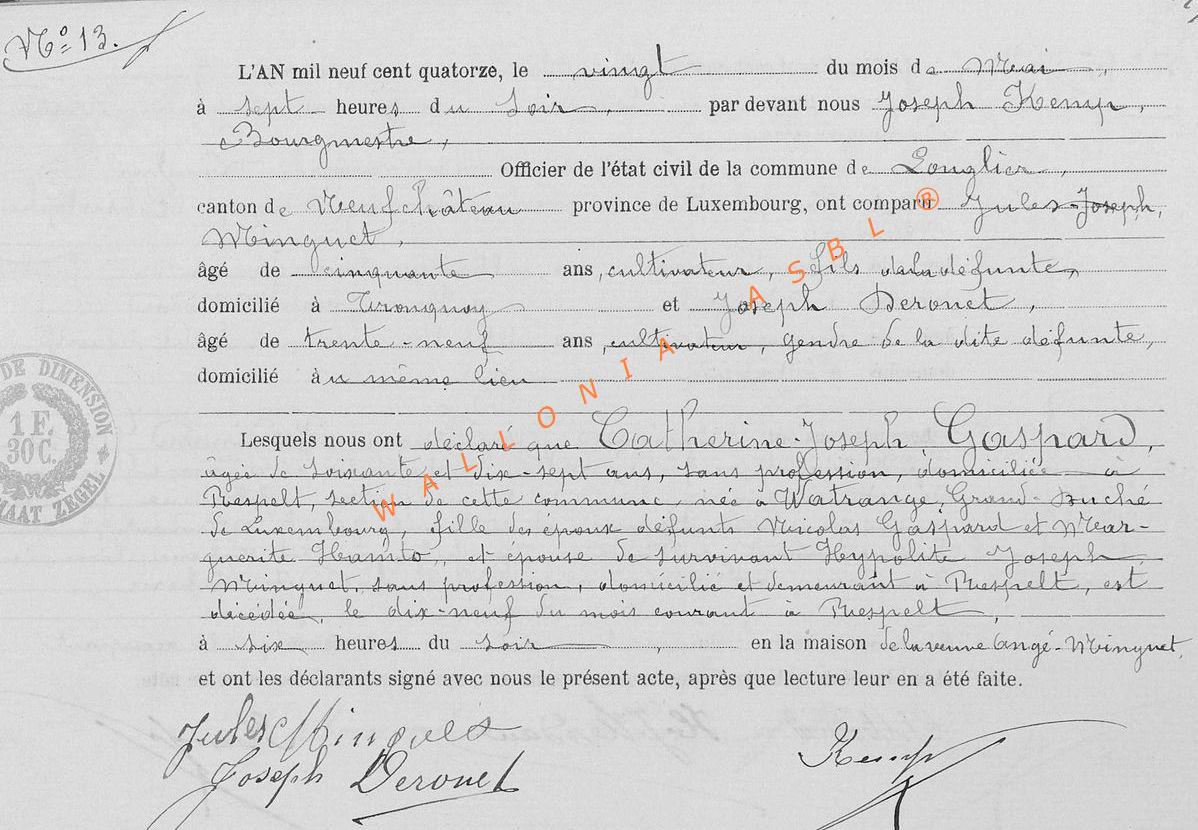 No 13.
L'AN mil neuf cent quatorze, le vingt du mois de Mai,
à sept heures du soir, par devant nous Joseph Kemp,
Bourgmestre,
Officier de l'état civil de la commune de Longlier,
canton de Neufchâteau province de Luxembourg, ont comparu Jules-Joseph,
Minguet,
âgé de cinquante ans, cultivateur, fils de la défunte,
domicilié à Tronquoy et Joseph Deronet,
âgé de trente-neuf ans, cultivateur, gendre de la dite défunte,
domicilié au même lieu
Lesquels nous ont déclaré que Catherine-Joseph Gaspard,
âgée de soixante et dix-sept ans, sans profession, domiciliée à
Respelt, section de cette commune, née à Watrange, Grand-Duché
de Luxembourg, fille des époux défunts Nicolas Gaspard et Mar-
guerite et épouse de survivant Hypolite Joseph
Minguet, sans profession, domicilié et demeurant à Respelt, est
décédée, le dix-neuf du mois courant à Respelt,
à six heures du soir, en la maison de la veuve Angé-Minguet,
et ont les déclarants signé avec nous le présent acte, après que lecture leur en a été faite.
Jules Minguet
Joseph Deronet
Kemp
DE DIMENSION
1 F.
30 C.
MAAT ZEGEL
WALLONIA ASBL ®